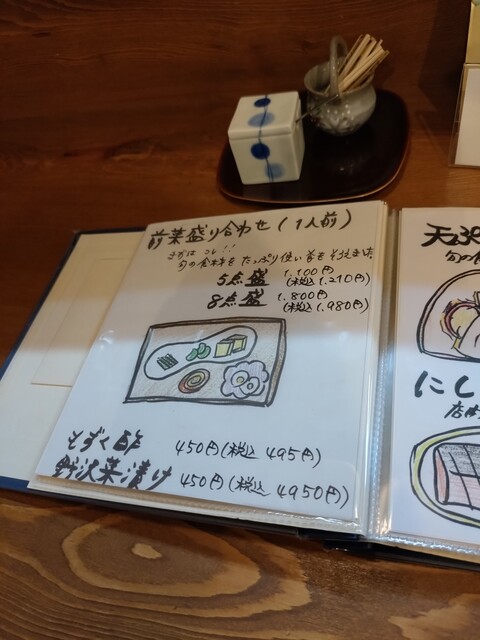 前菜盛り合わせ(1人前)
まずは コレ!!
旬の食材をたっぷり使い
5点盛 1,100円
(税込 1,210円)
8点盛 1,800円
(税込 1,980円)
もずく酢 450円(税込 495円)
野沢菜漬け 450円(税込 4950円)
天ぷ
旬の
にし